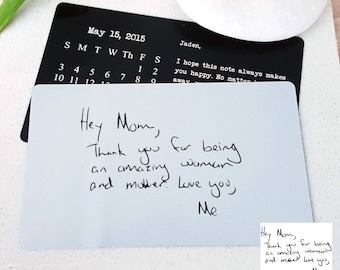 May 15, 2015
S M T W Th F S
1 2
3 4 5 6 7 8 9
10 11 12 13 14 15 16
Jaden,
I hope this note always makes
you happy. No matter
away
Hey Mom,
Thank you for being
an amazing woman
and mother. Love you,
Me
Hey Mom,
Thank you for being
an amazing woman
and mother. Love you,